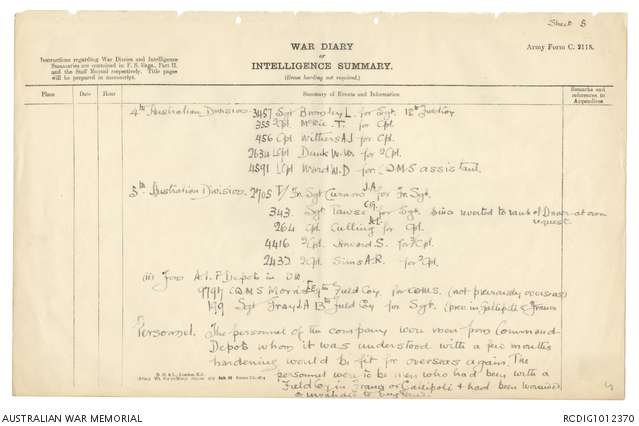 Sheet 8
WAR DIARY
or
INTELLIGENCE SUMMARY.
(Erase heading not required.)
Army Form C. 2118.
Instructions regarding War Diaries and Intelligence
Summaries are contained in F. S. Regs., Part II.
and the Staff Manual respectively. Title pages
will be prepared in manuscript.
Place
Date
Hour
Summary of Events and Information
Remarks and
references to
Appendices
4th Australian Division. 3457 Sgt L. for Sgt. 12th
353 2Cpl T. for Cpl.
456 Cpl Withers A.J for Cpl
2634 LCpl Dunk W.W. for 2Cpl
4591 LCpl Ward W.D for C.Q.M.S assistant.
5th Australian Division. 2705 T/ Sgt Curnow J.A. for Sgt.
343. Sgt Pawse C.G. for Sgt. since reverted to rank of at own
request
264 Cpl Culling for Cpl.
4416 2Cpl Howard S. for 2Cpl.
2432 2Cpl Sims A.R. for 2Cpl.
(iii) From A.I.F Depots in UK
C.Q.M.S Field Coy. for C.Q.M.S. (not previously overseas)
Sgt A 13th Field Coy for Sgt. (prev. in Gallipoli & France
Personnel. The personnel of the company were men from Command
Depots whom it was understood with a few months
hardening would be fit for overseas again. The
personnel were to be men who had been with a
Field Coy in France or Gallipoli & had been wounded
or invalided to England.
AUSTRALIAN WAR MEMORIAL
RCDIG1012370